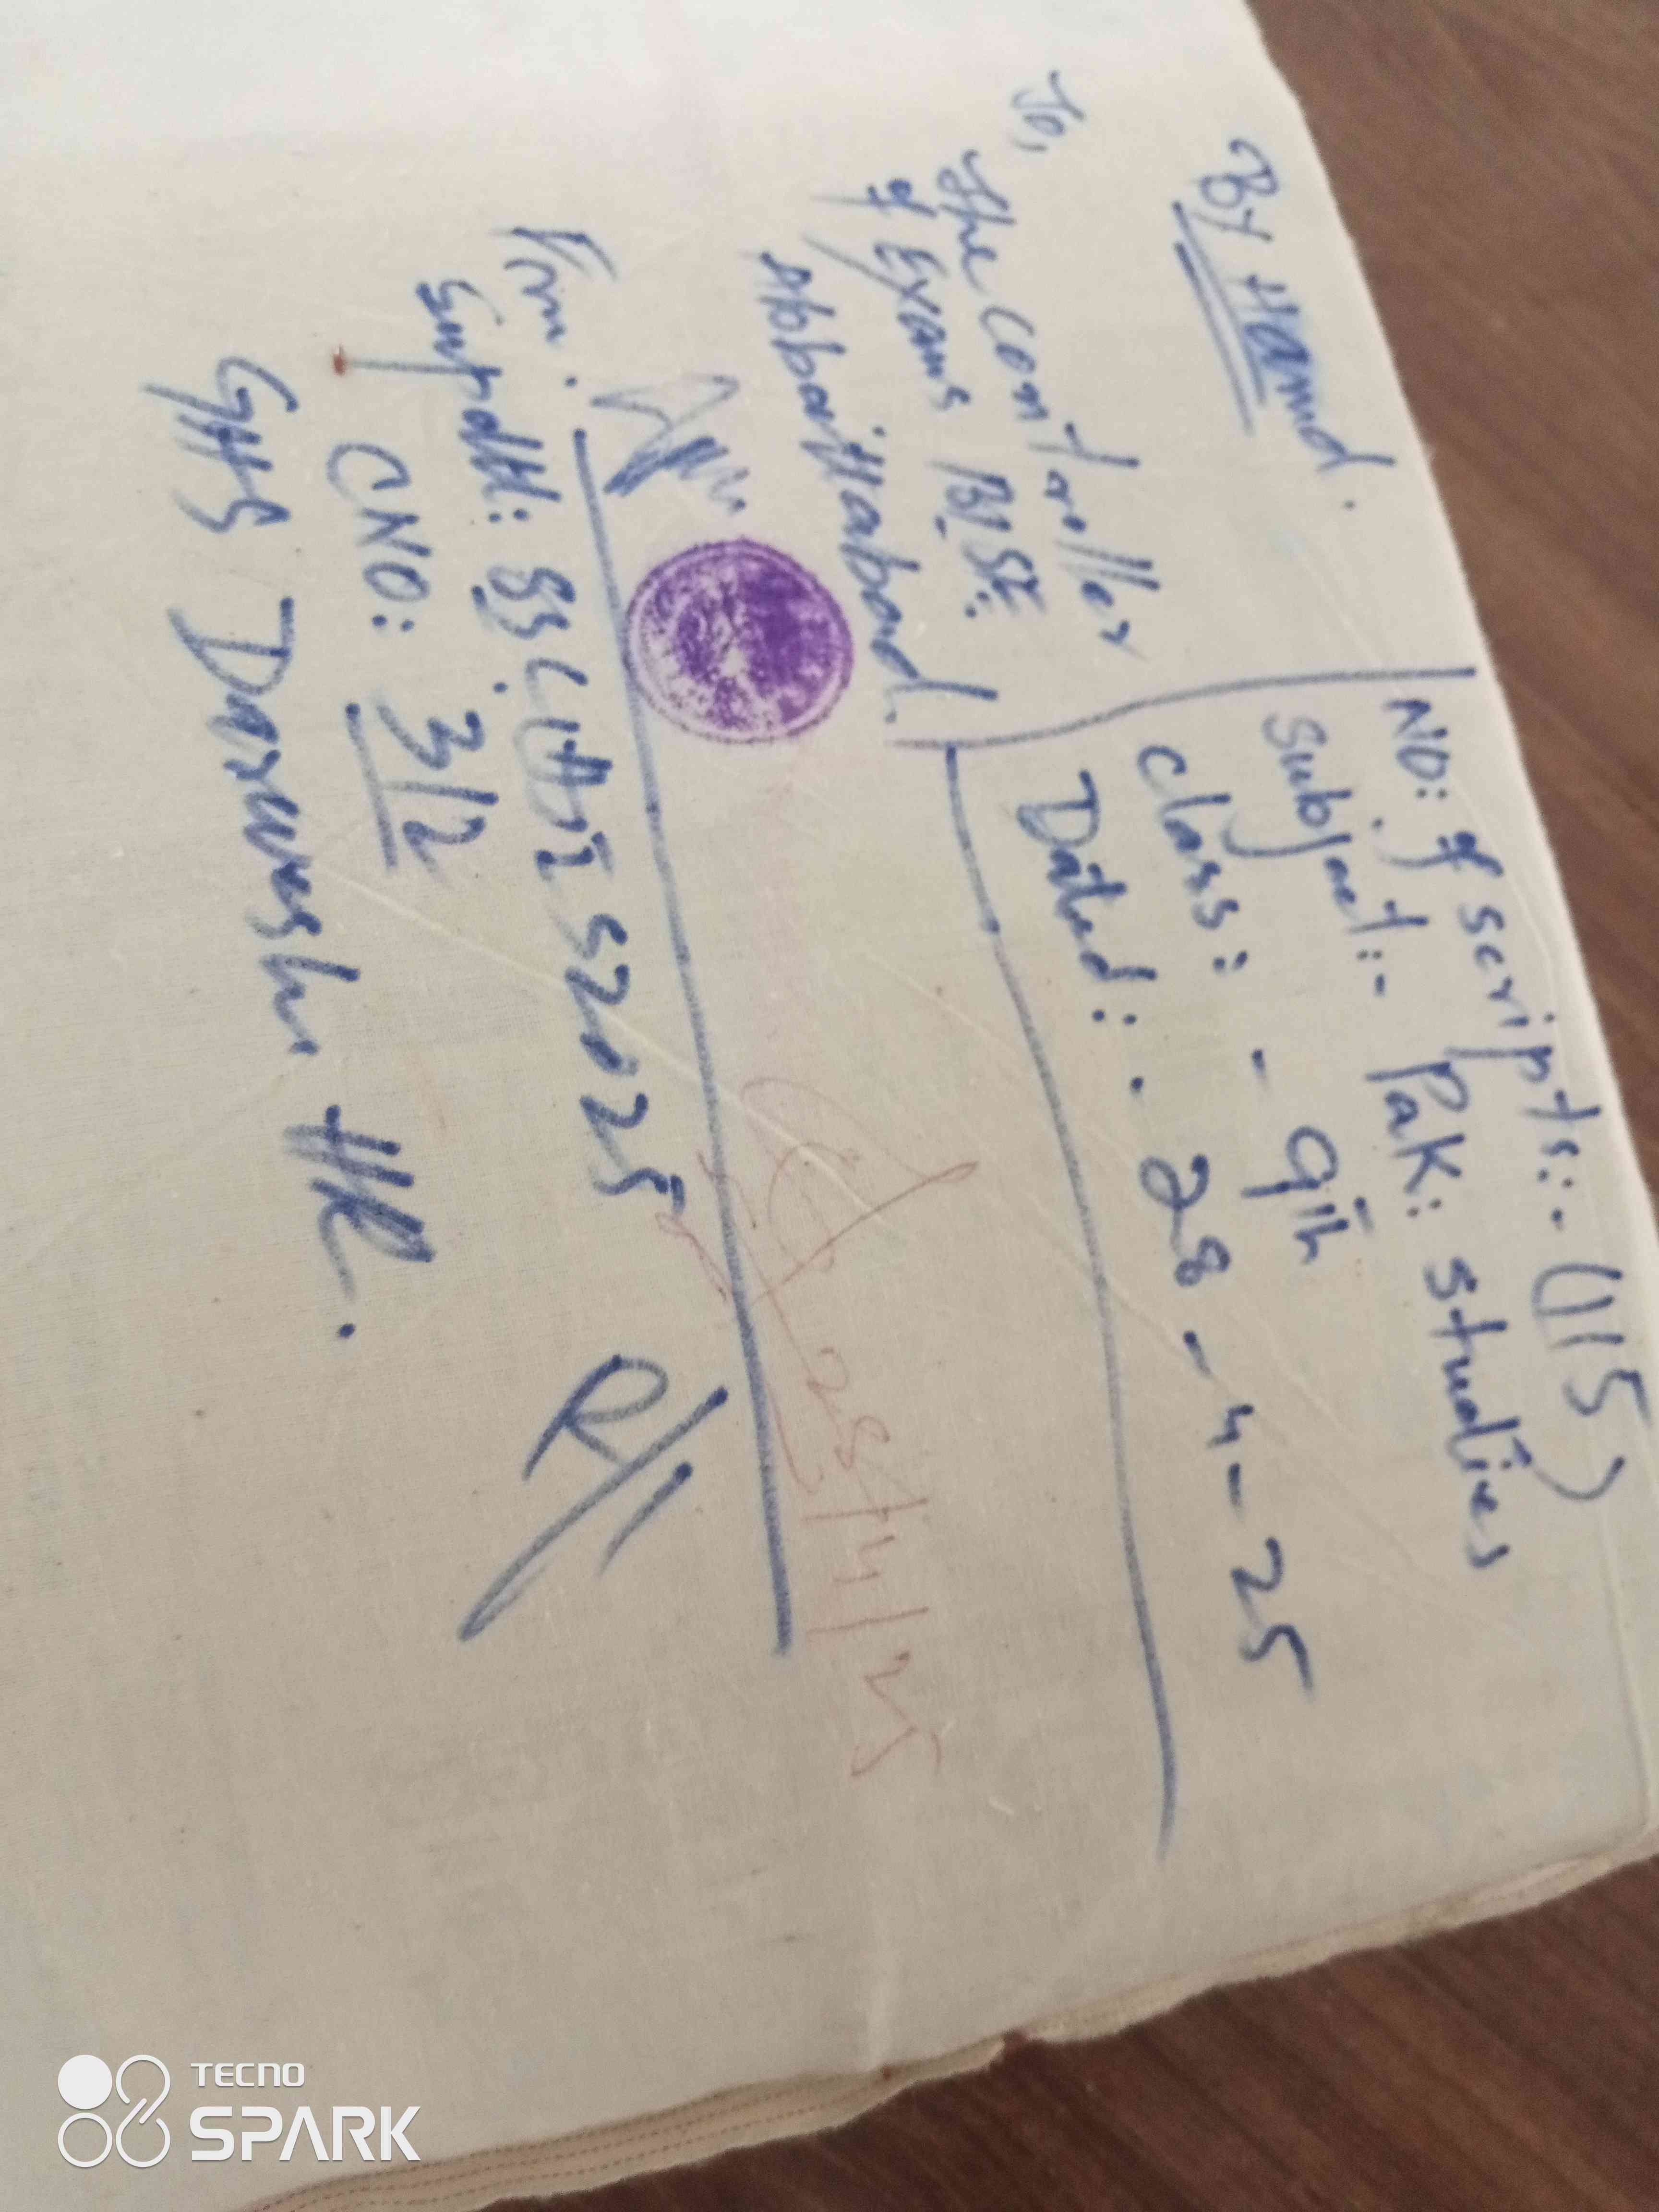 By Hand.
To,
The Controller
of Exams BISE:
Abbottabad.
NO: of scripts:- (115)
Subject:- Pak: studies
Class: - 9th
Dated: . 28-4-25
From:
Supdtt: SSC(A)I S2025
CNO: 312
GHS Darwesh HR.
R/1
28/4/25
TECNO
SPARK